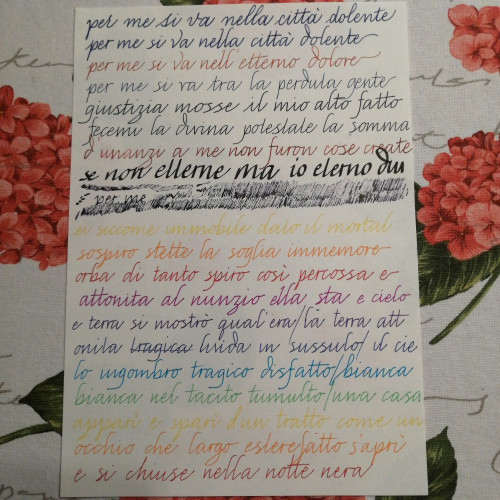 per me si va nella città dolente
per me si va nella città dolente
per me si va nell'etterno dolore
per me si va tra la perduta gente
giustizia mosse il mio alto fatto
fecemi la divina potestate la somma
d'unanzi a me non furon cose create
se non etterne ma io eterno du
per me
ei siccome immobile dato il mortal
sospiro stette la soglia immemore
orba di tanto spiro così percossa e
attonita al nunzio ella sta e cielo
e terra si mostrò qual'era/la terra att
onita tragica livida in sussulo/il cie
lo ingombro tragico disfatto/bianca
bianca nel tacito tumulto/una casa
apparì e sparì d'un tratto come un
occhio che largo eslerefatto s'aprì
e si chiuse nella notte nera